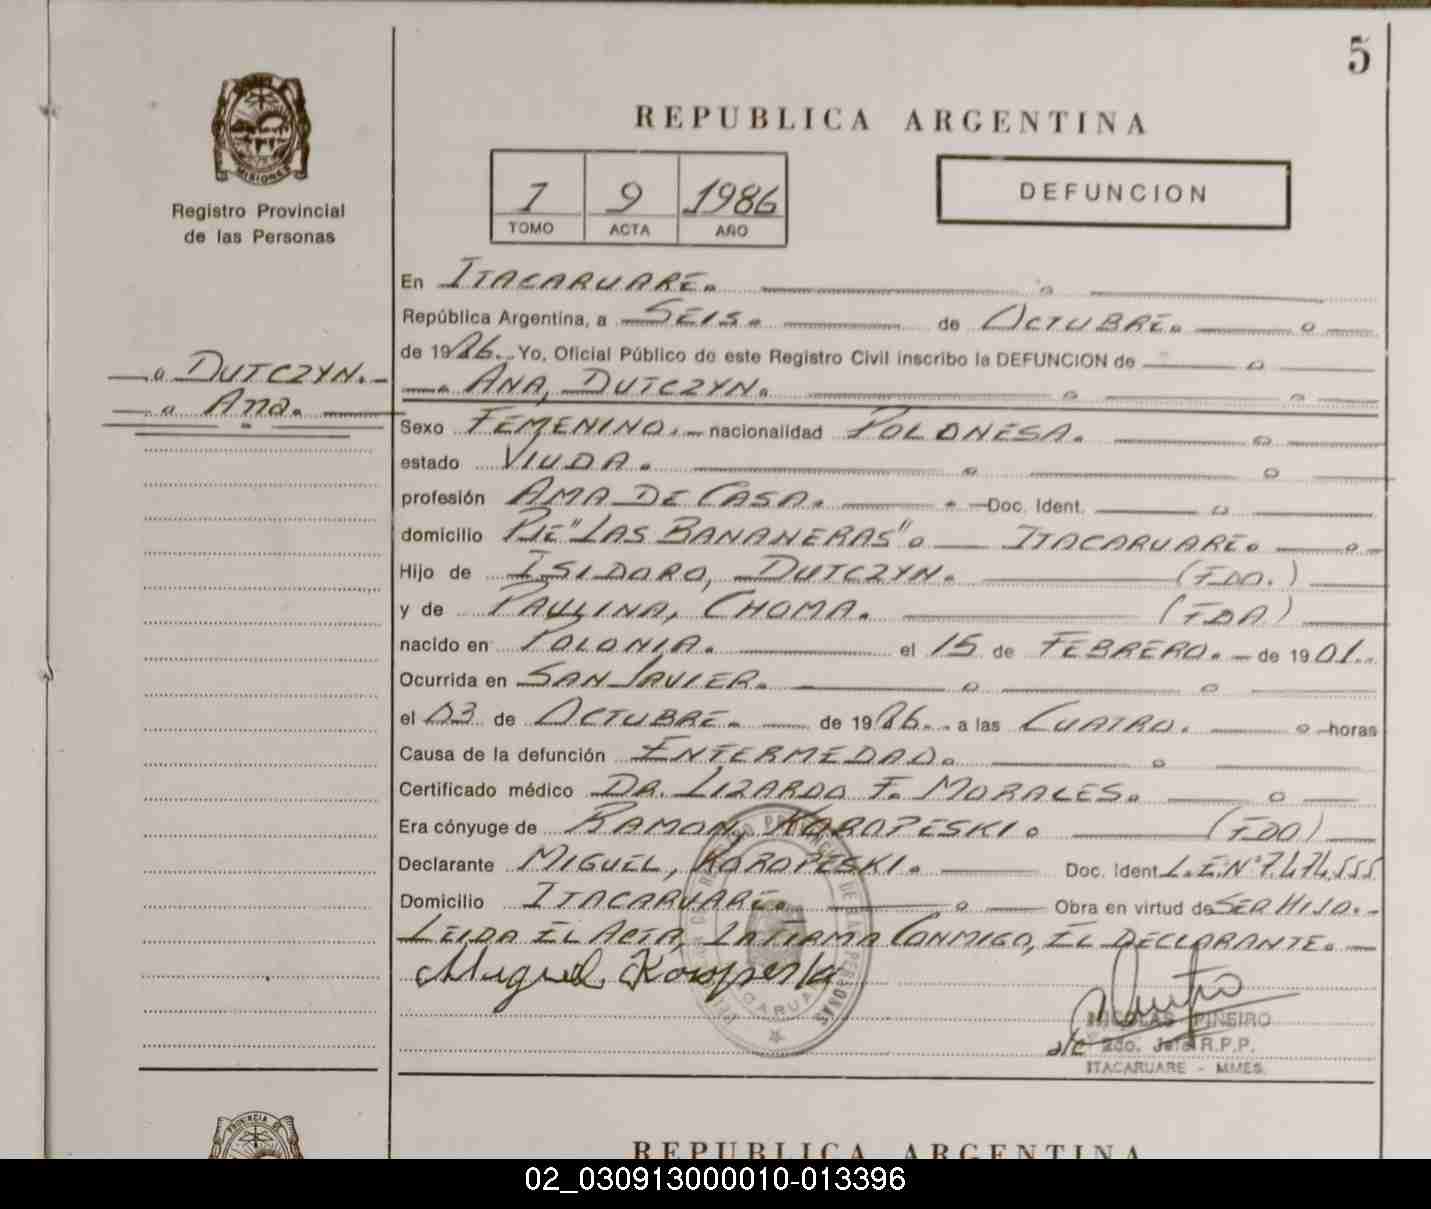 5
MISIONES
Registro Provincial
de las Personas
REPUBLICA ARGENTINA
1 9 1986
TOMO ACTA AÑO
DEFUNCION
En ITACARUARE.
República Argentina, a SEIS. de OCTUBRE.
de 1986. Yo, Oficial Público de este Registro Civil inscribo la DEFUNCION de
DUTCZYN.
Ana.
ANA, DUTCZYN.
Sexo FEMENINO. nacionalidad POLONESA.
estado VIUDA.
profesión AMA DE CASA. Doc. Ident.
domicilio PJE "LAS BANANERAS". ITACARUARE.
Hijo de ISIDORO, DUTCZYN. (FDO.)
y de PAULINA, CHOMA. (FDA)
nacido en POLONIA. el 15 de FEBRERO. de 1901.
Ocurrida en SAN JAVIER.
el 03 de OCTUBRE. de 1986. a las CUATRO. horas
Causa de la defunción ENFERMEDAD.
Certificado médico DR. LIZARDO F. MORALES.
Era cónyuge de RAMON, KOROPESKI. (FDO)
Declarante MIGUEL, KOROPESKI. Doc. Ident. L.E.Nº 7.474.555
Domicilio ITACARUARE. Obra en virtud de SER HIJO.
LEIDA EL ACTA, LA FIRMA CONMIGO, EL DECLARANTE.
Miguel Koropeski
NICOLAS PIÑEIRO
a/c 2do. Jefe R.P.P.
ITACARUARE - MNES.
PROVINCIA DE
REPUBLICA ARGENTINA
02_030913000010-013396